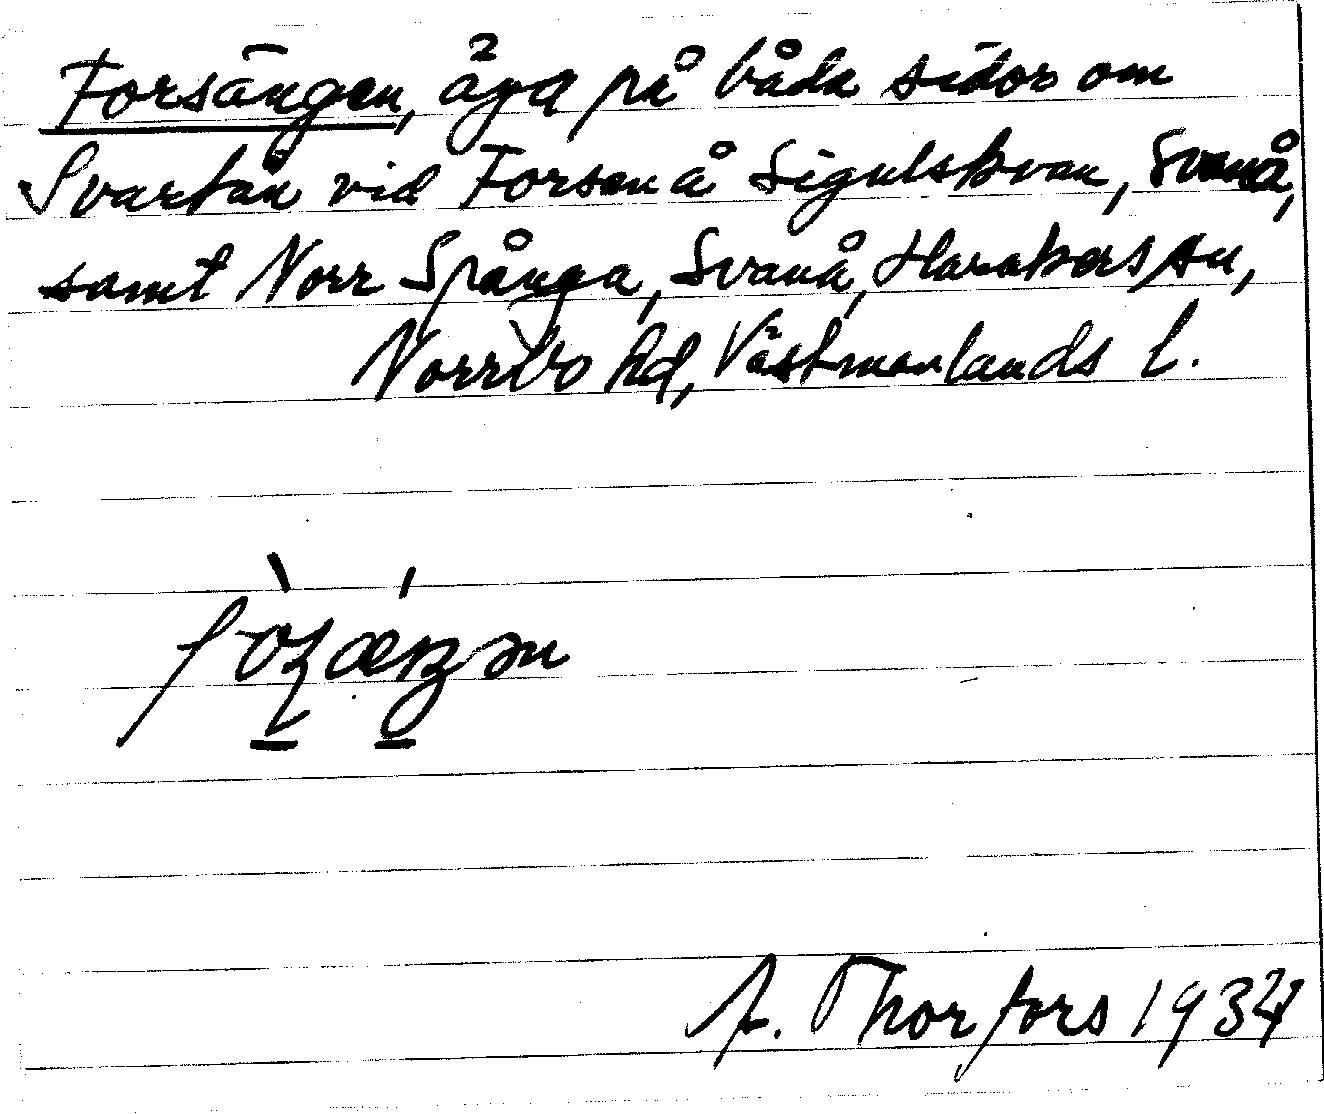 Forsängen, äga på båda sidor om
Svartån vid Forsen å Sigulskvan, Svanå,
samt Norr Spånga, Svanå, Harakers sn,
Norrbo hd, Västmanlands l.
A. Thorfors 1934